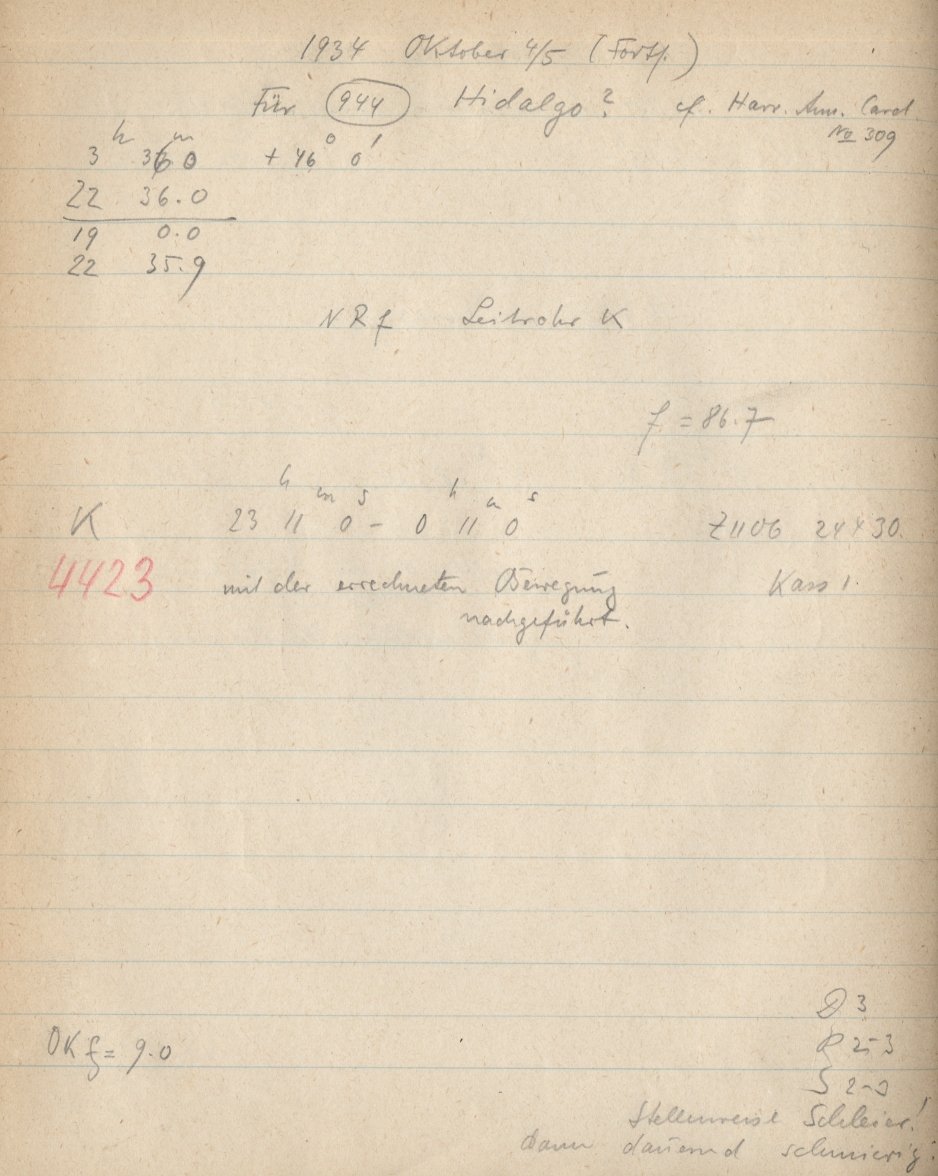 1934 Oktober 4/5 (Forts.)
Für 944 Hidalgo? cf. Harv. Ann. Card
No 309
3h 36.0m +46° 0'
22 36.0
19 0.0
22 35.9
NRf Leitrohr K
f = 86.7
K 23h 11m 0s - 0h 11m 0s Z1106 24 × 30.
4423 mit der errechneten Bewegung Kass 1.
nachgeführt.
D 3
OKf = 9.0 R 2-3
S 2-3
Stellenweise Schleier!
Dann dauernd schmierig.